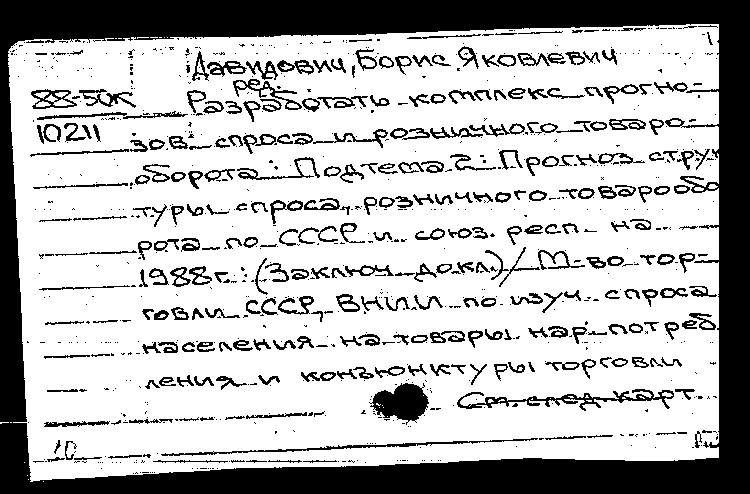 Давидович, Борис Яковлевич
ред.
88-50К Разработать комплекс прогно-
10211 зов спроса и розничного товаро-
оборота: Подтема 2: Прогноз струк
туры спроса, розничного товарообо
рота по СССР и союз. респ. на
1988 г.: (Заключ. докл.) / М-во тор-
говли СССР, ВНИИ по изуч. спроса
населения на товары нар. потреб
ления и конъюнктуры торговли
См. след. карт.
10